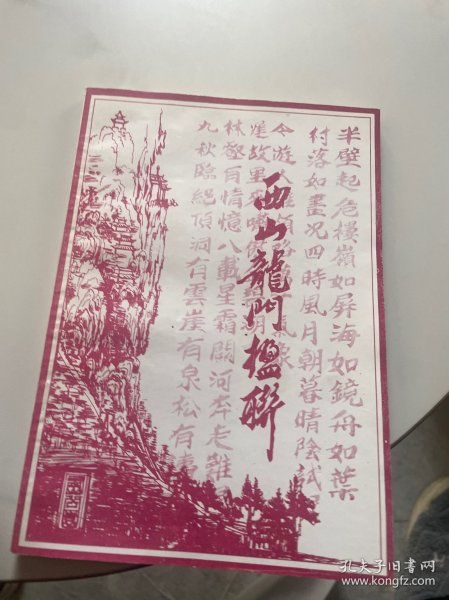 西山龍門楹聯
半壁起危樓嶺如屏海如鏡舟如葉
村落如畫況四時風月朝暮晴陰試
今遊
故里
林壑有情憶八載星霜關河奔走難
九秋臨絕頂洞有雲崖有泉松有濤
孔夫子旧書网
www.kongfz.com